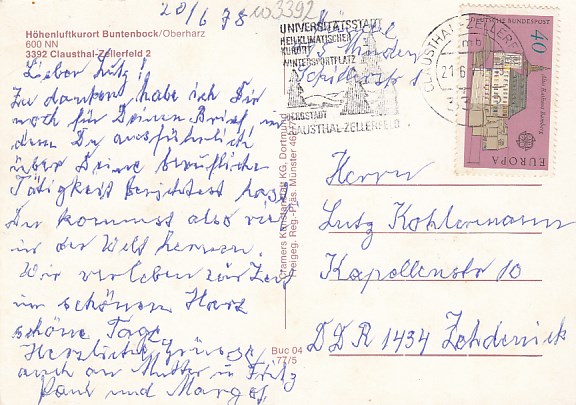 20/6 78
w3392
Höhenluftkurort Buntenbock/Oberharz
600 NN
3392 Clausthal-Zellerfeld 2
Lieber Lutz!
Zu danken habe ich Dir
noch für Deinen Brief, in
dem Du ausführlich
über Deine berufliche
Tätigkeit berichtest hast
Du kommst also viel
in der Welt herum.
Wir verleben zur Zeit
im schönen Harz
schöne Tage,
Herzliche Grüsse
auch an Mutter u Fritz
Paul und Margot
Minden
Schillerstr 1
UNIVERSITÄTSSTADT
HEILKLIMATISCHER
KURORT
WINTERSPORTPLATZ
BERGSTADT
CLAUSTHAL-ZELLERFELD 1
CLAUSTHAL-ZELLERFE
mb
21.6.7
DEUTSCHE BUNDESPOST
40
Altes Rathaus Bamberg
EUROPA
CEPT
Cramers Kunstanstalt KG, Dortmund
Freigeg. Reg.-Präs. Münster
Buc 04
77/5
Herrn
Lutz Kohlermann
Kapellenstr 10
DDR 1434 Zehdenick